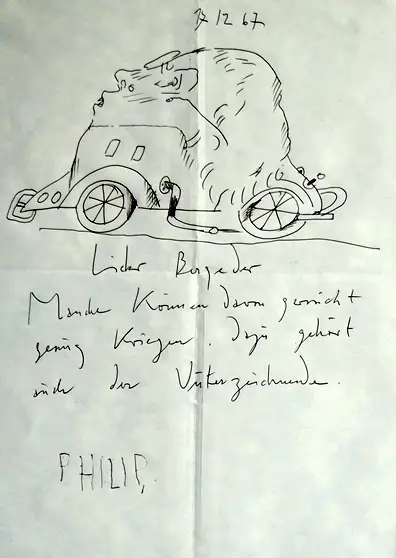 12 12 67
Lieber Borgeder
Manche Können davon garnicht
genug Kriegen. Dazu gehört
auch der Unterzeichnende.
PHILIP.